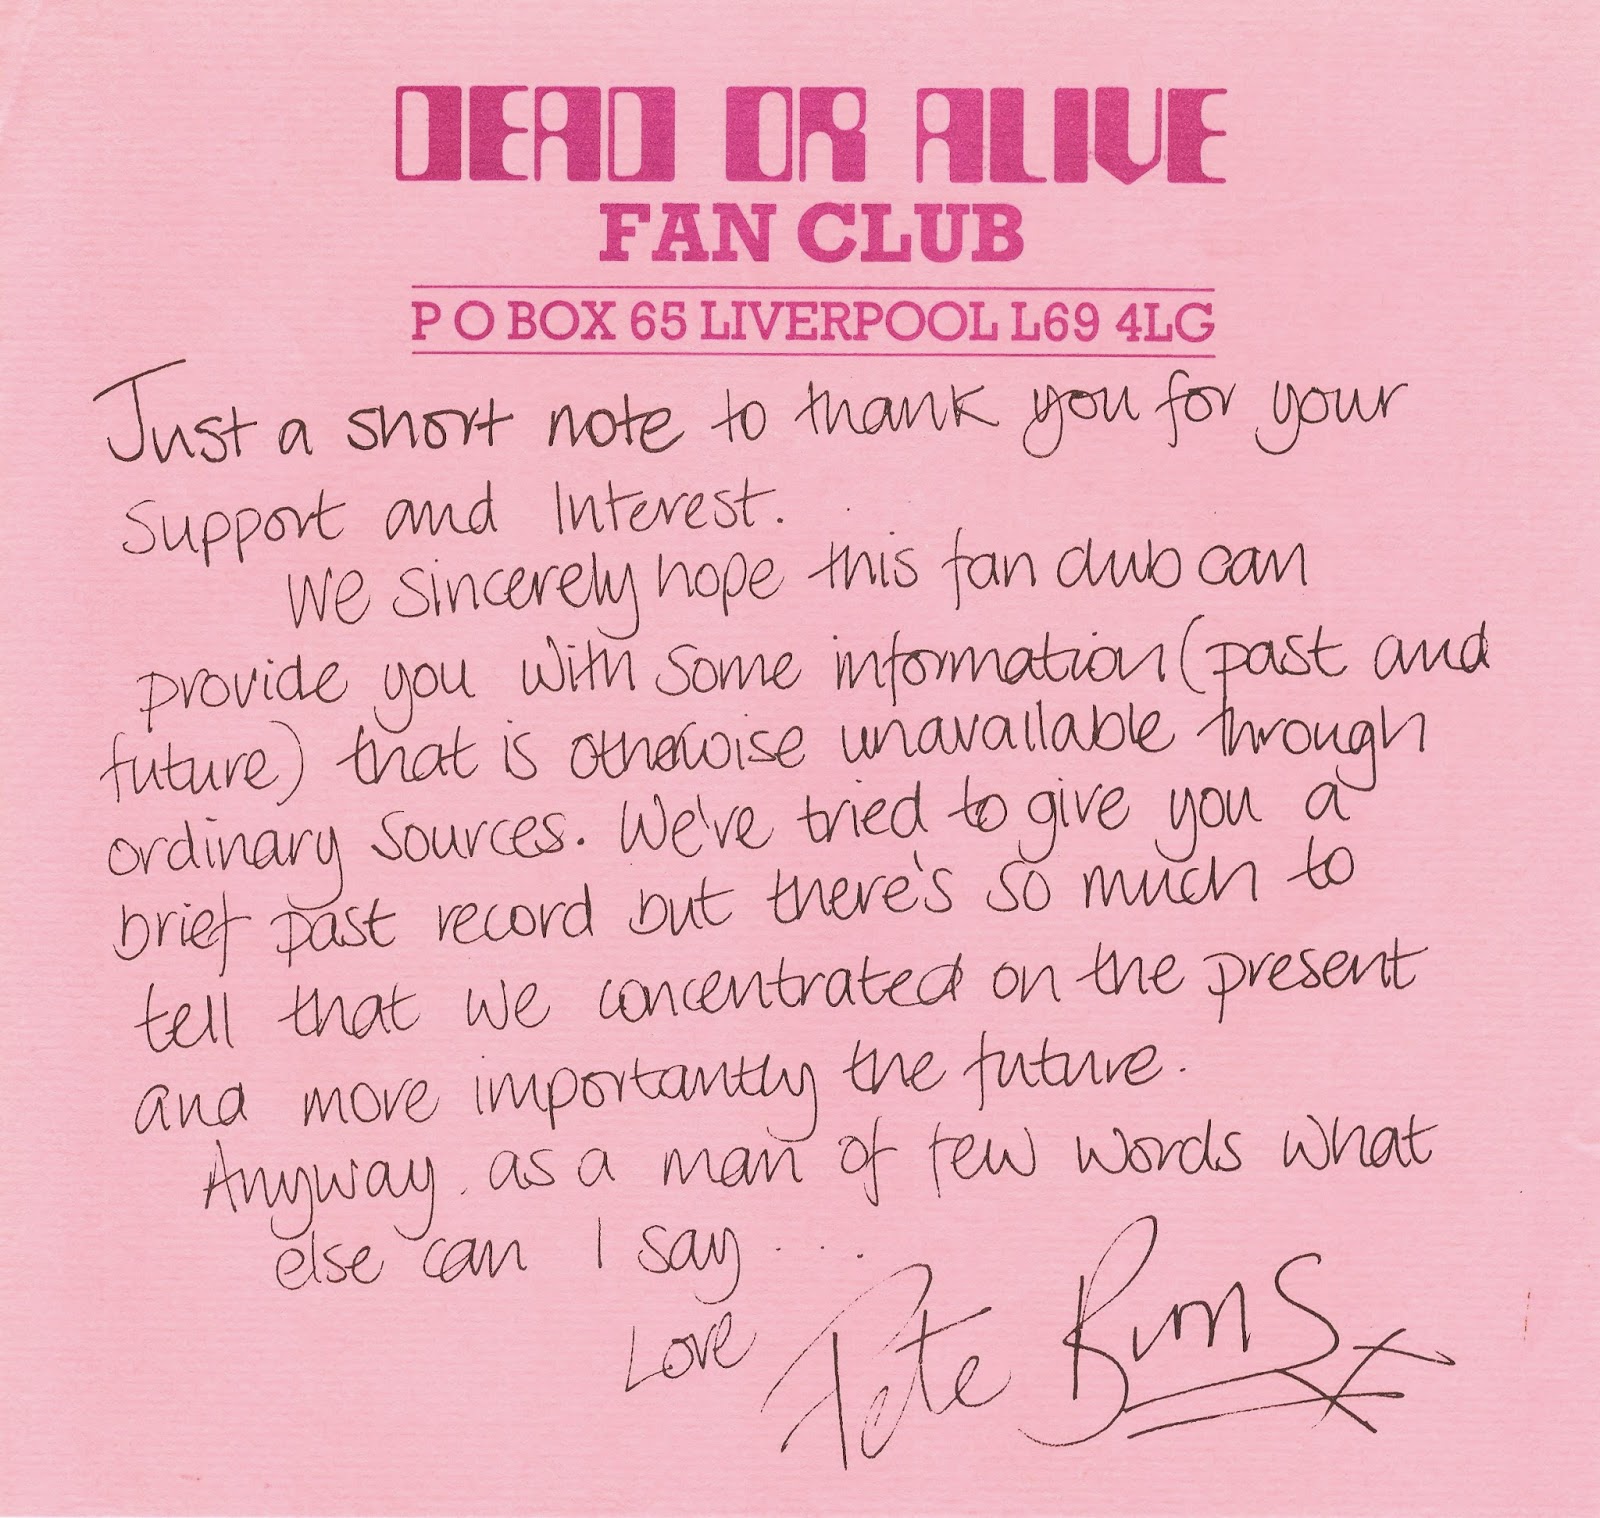 DEAD OR ALIVE
FAN CLUB
P O BOX 65 LIVERPOOL L69 4LG
Just a short note to thank you for your
support and interest.
We sincerely hope this fan club can
provide you with some information (past and
future) that is otherwise unavailable through
ordinary sources. We've tried to give you a
brief past record but there's so much to
tell that we concentrated on the present
and more importantly the future.
Anyway. as a man of few words what
else can I say ....
Love Pete Burns x